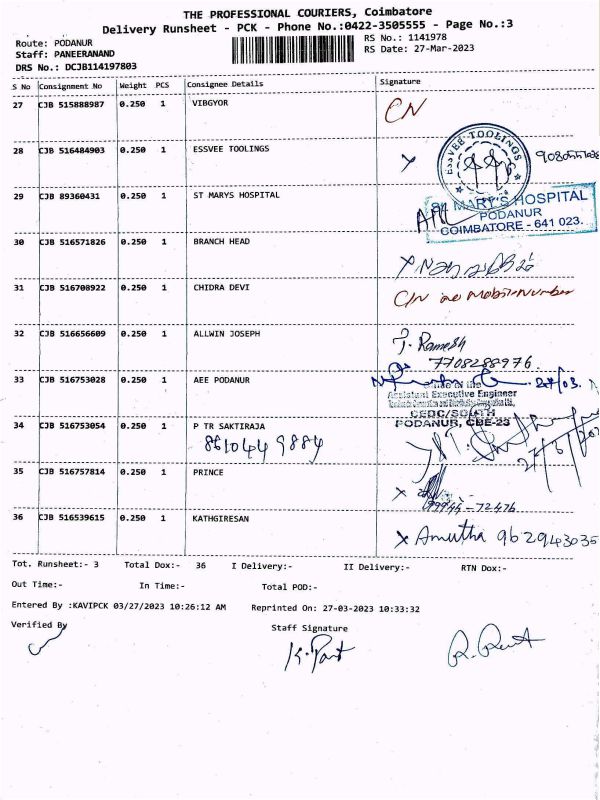 THE PROFESSIONAL COURIERS, Coimbatore
Delivery Runsheet - PCK - Phone No.:0422-3505555 - Page No.:3
Route: PODANUR
RS No.: 1141978
Staff: PANEERANAND
RS Date: 27-Mar-2023
DRS No.: DCJB114197803
S No Consignment No Weight PCS Consignee Details Signature
27 CJB 515888987 0.250 1 VIBGYOR CN
28 CJB 516484903 0.250 1 ESSVEE TOOLINGS
ESSVEE TOOLINGS
29 CJB 89360431 0.250 1 ST MARYS HOSPITAL
ST MARY'S HOSPITAL
PODANUR
COIMBATORE - 641 023.
30 CJB 516571826 0.250 1 BRANCH HEAD
31 CJB 516700922 0.250 1 CHIDRA DEVI C/N no Mobile Number
32 CJB 516656609 0.250 1 ALLWIN JOSEPH J. Ramesh
7708288976
33 CJB 516753028 0.250 1 AEE PODANUR 27/03.
Assistant Executive Engineer
CEDC/SOUTH
PODANUR, CBE-23
34 CJB 516753054 0.250 1 P TR SAKTIRAJA
8610449884
35 CJB 516757814 0.250 1 PRINCE
99944-72476
36 CJB 516539615 0.250 1 KATHGIRESAN x Amutha 962943035
Tot. Runsheet:- 3 Total Dox:- 36 I Delivery:- II Delivery:- RTN Dox:-
Out Time:- In Time:- Total POD:-
Entered By :KAVIPCK 03/27/2023 10:26:12 AM Reprinted On: 27-03-2023 10:33:32
Verified By Staff Signature